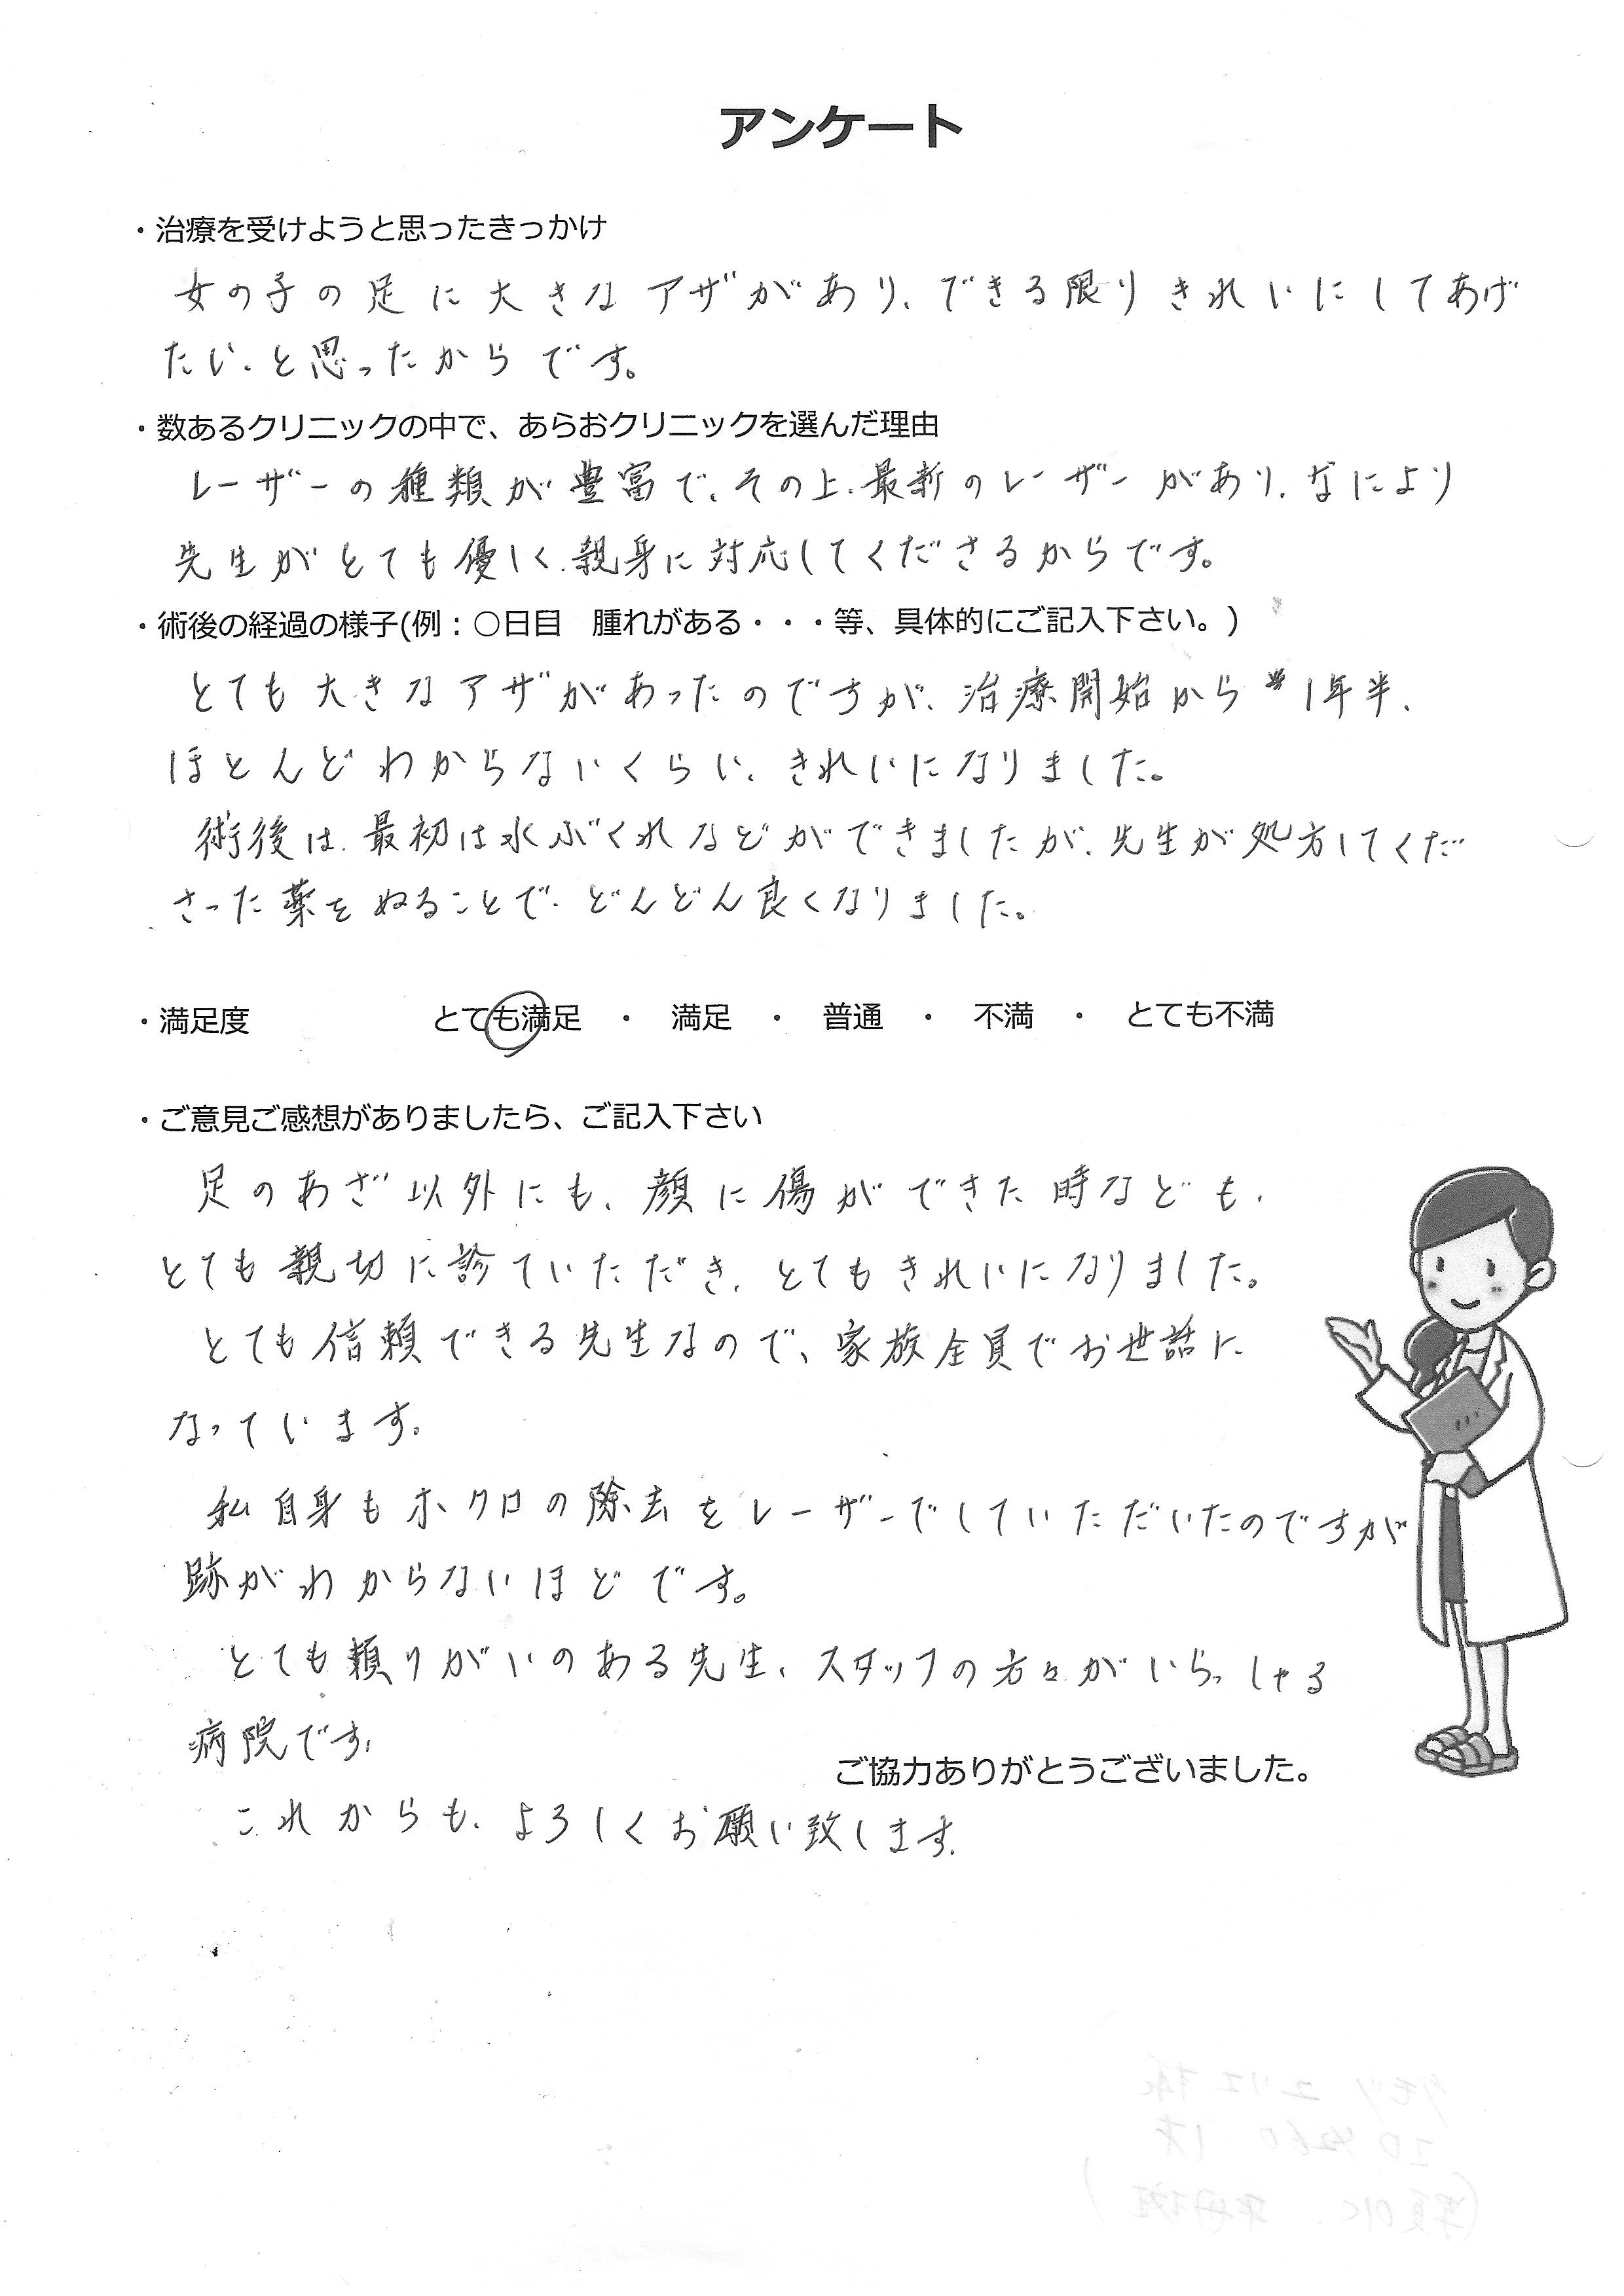 アンケート
・治療を受けようと思ったきっかけ
女の子の足に大きなアザがあり、できる限りきれいにしてあげ
たい、と思ったからです。
・数あるクリニックの中で、あらおクリニックを選んだ理由
レーザーの種類が豊富で、その上、最新のレーザーがあり、なにより
先生がとても優しく、親身に対応してくださるからです。
・術後の経過の様子(例：○日目　腫れがある・・・等、具体的にご記入下さい。)
とても大きなアザがあったのですが、治療開始から1年半、
ほとんどわからないくらい、きれいになりました。
術後は、最初は水ぶくれなどができましたが、先生が処方してくだ
さった薬をぬることで、どんどん良くなりました。
・満足度　とても満足　・　満足　・　普通　・　不満　・　とても不満
・ご意見ご感想がありましたら、ご記入下さい
足のあざ以外にも、顔に傷ができた時なども、
とても親切に診ていただき、とてもきれいになりました。
とても信頼できる先生なので、家族全員でお世話に
なっています。
私自身もホクロの除去をレーザーでしていただいたのですが
跡がわからないほどです。
とても頼りがいのある先生、スタッフの方々がいらっしゃる
病院です。
ご協力ありがとうございました。
これからも、よろしくお願い致します。